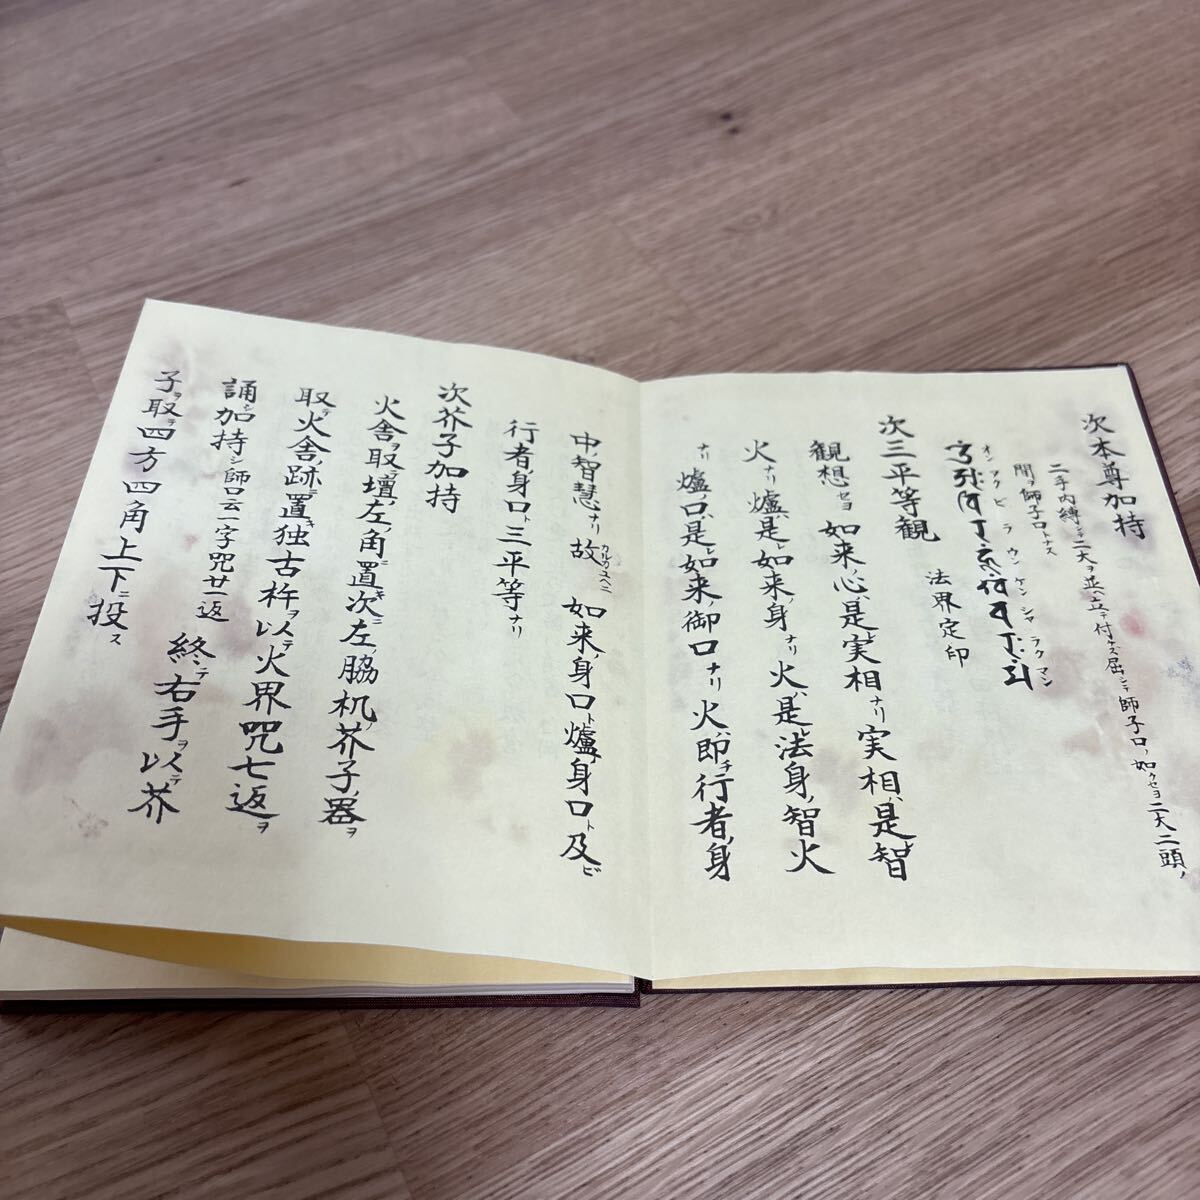 次本尊加持
二手内縛シテ二大ヲ並ヘ立テ付ケズ屈シテ師子口ノ如クセヨ二大二頭ノ
間ヲ師子口トナス
オン アク ビ ラ ウン ケン シャ ラク マン
次三平等観 法界定印
観想セヨ 如来ノ心ハ是レ実相ナリ 実相ハ是レ智
火ナリ 爐ハ是レ如来ノ身ナリ 火ハ是レ法身ノ智火
ナリ 爐ノ口ハ是レ如来ノ御口ナリ 火ハ即チ行者ノ身
中ノ智慧ナリ 故ニ 如来ノ身口ト爐ノ身口ト及ビ
カルガユヘニ
行者ノ身口ト三平等ナリ
次芥子加持
火舎ヲ取テ壇ノ左ノ角ニ置キ次ニ左ノ脇机ノ芥子ノ器ヲ
取テ火舎ノ跡ニ置キ独古杵ヲ以テ火界咒七返ヲ
誦シ加持シ師口云一字咒廿一返 終テ右手ヲ以テ芥
子ヲ取テ四方四角上下ニ投ス